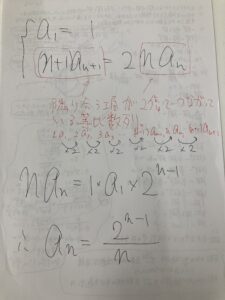 a₁ = 1
(n+1)aₙ₊₁ = 2 n aₙ
隣り合う項が2倍でつながって
いる等比数列!
1a₁, 2a₂, 3a₃ (n-1)aₙ₋₁, naₙ, (n+1)aₙ₊₁
×2 ×2 ×2 ×2 ×2 ×2
n aₙ = 1・a₁ × 2ⁿ⁻¹
∴ aₙ = 2ⁿ⁻¹ / n